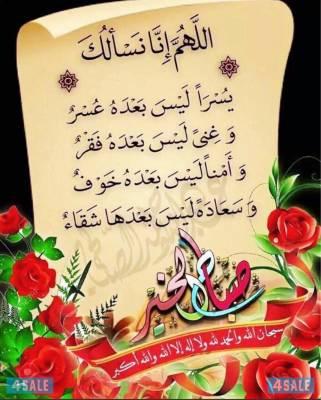 اللَّهُمَّ إِنَّا نَسْأَلُكَ
يُسْرَاً لَيْسَ بَعْدَهُ عُسْرٌ
وَ غِنَىً لَيْسَ بَعْدَهُ فَقْرٌ
وَ أَمْناً لَيْسَ بَعْدَهُ خَوْفٌ
وَ سَعَادَةً لَيْسَ بَعْدَهَا شَقَاءٌ
صباح الخير
سبحان الله والحمد لله ولا إله إلا الله والله أكبر
4SALE 4SALE